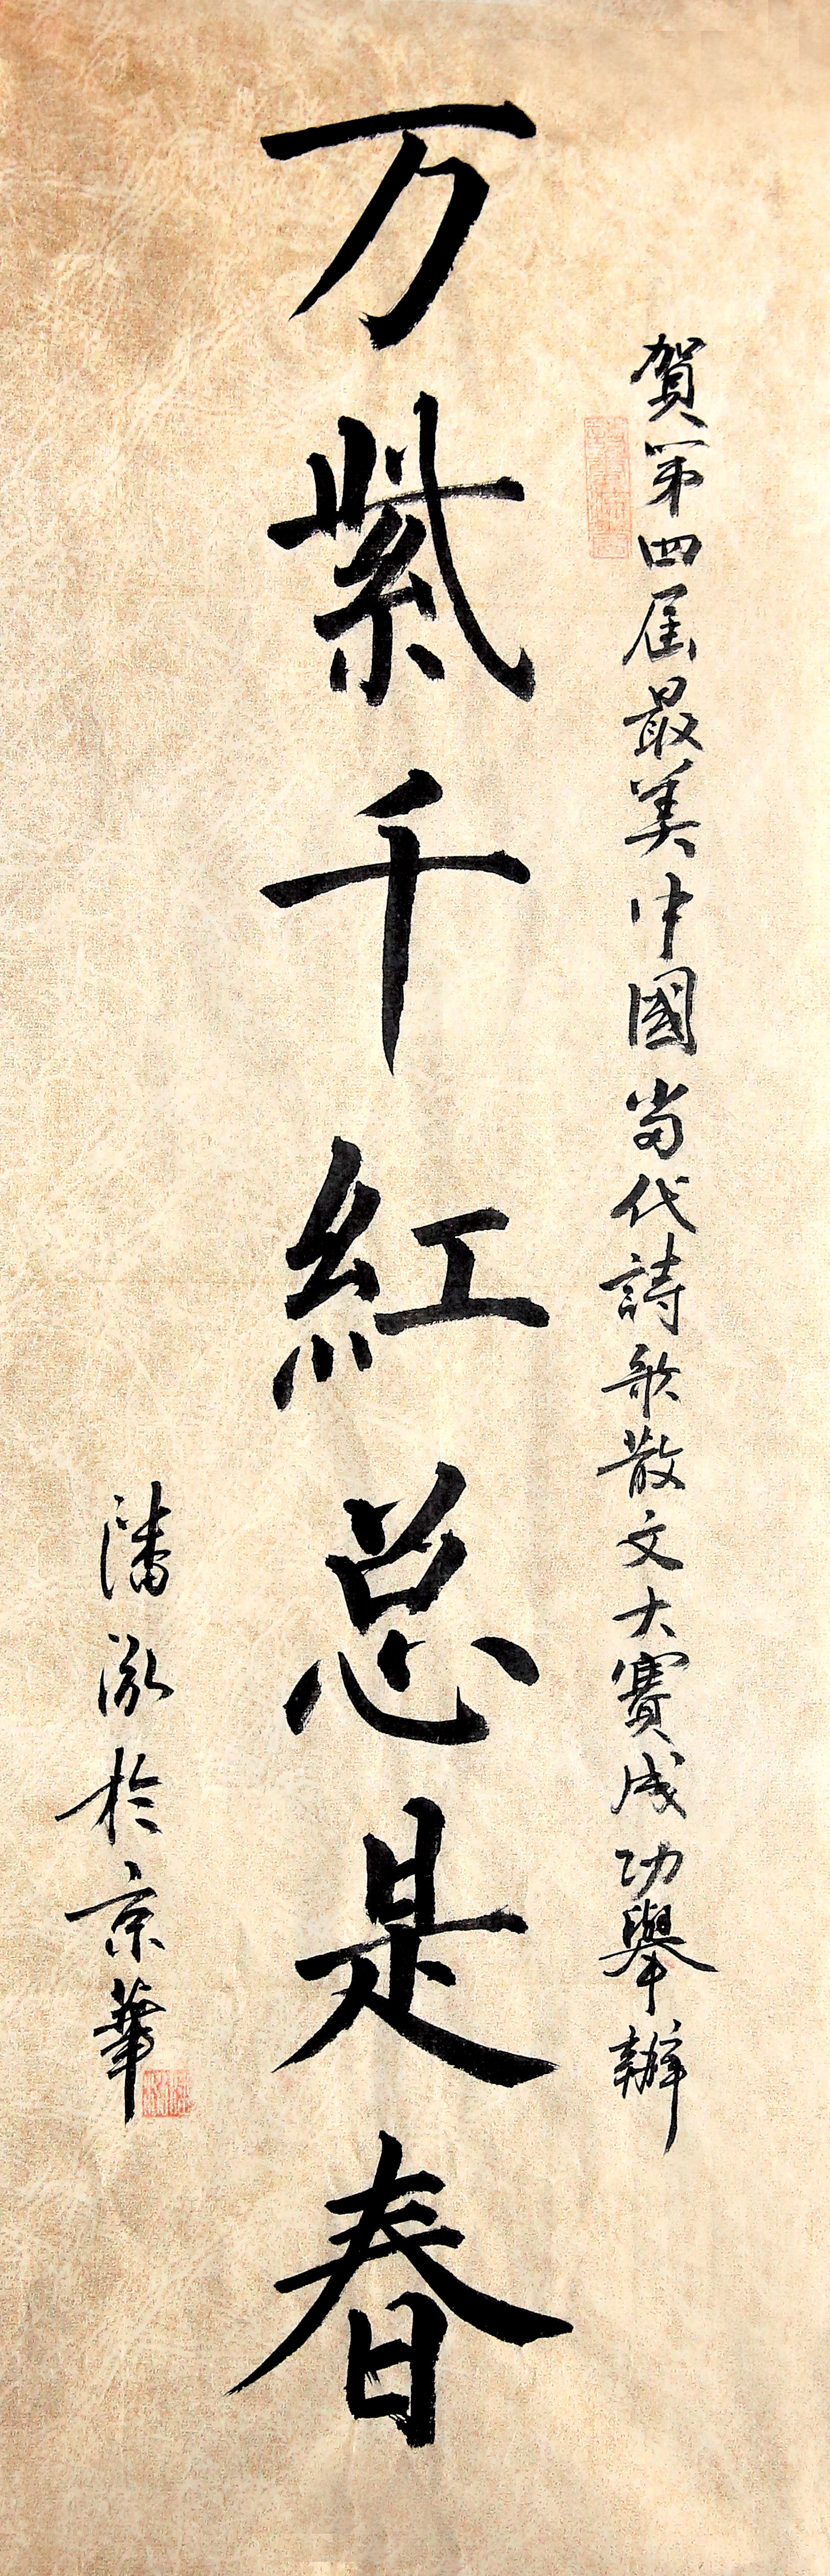 賀第四届最美中國当代詩歌散文大賽成功舉辦
万紫千紅总是春
潘泓於京華